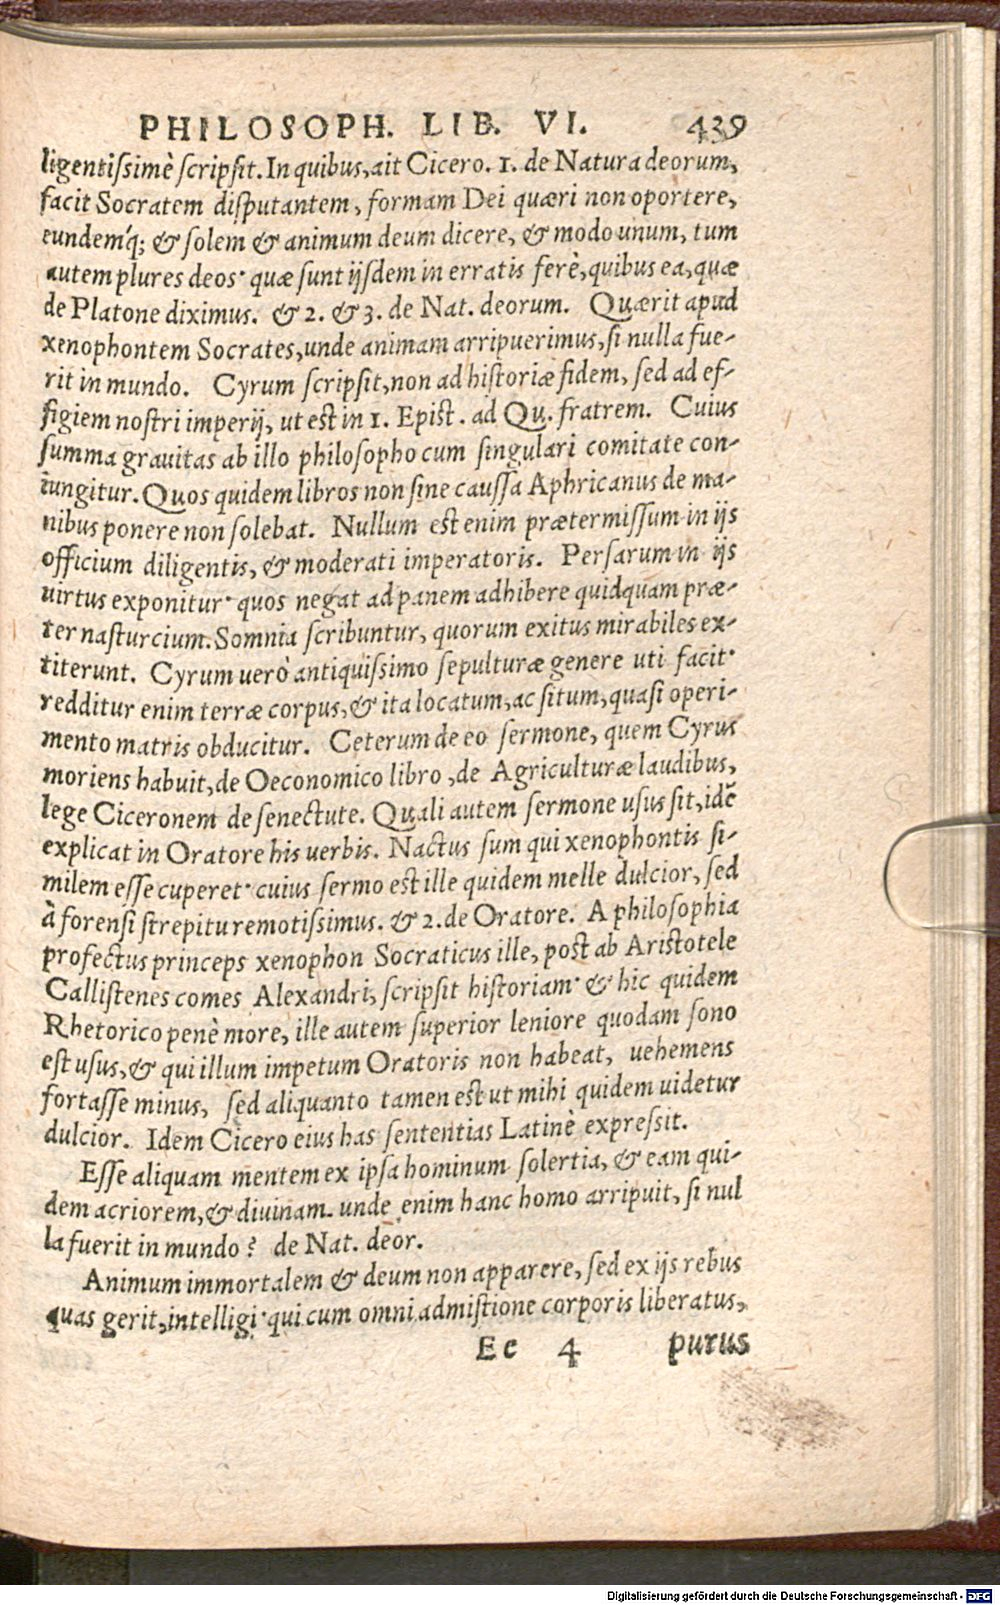 PHILOSOPH. LIB. VI. 439
ligentissimè scripsit. In quibus, ait Cicero. 1. de Natura deorum,
facit Socratem disputantem, formam Dei quæri non oportere,
eundemq́; & solem & animum deum dicere, & modo unum, tum
autem plures deos· quæ sunt ijsdem in erratis ferè, quibus ea, quæ
de Platone diximus. & 2. & 3. de Nat. deorum. Quærit apud
xenophontem Socrates, unde animam arripuerimus, si nulla fue-
rit in mundo. Cyrum scripsit, non ad historiæ fidem, sed ad ef-
figiem nostri imperij, ut est in 1. Epist. ad Qu. fratrem. Cuius
summa grauitas ab illo philosopho cum singulari comitate con-
iungitur. Quos quidem libros non sine caussa Aphricanus de ma-
nibus ponere non solebat. Nullum est enim prætermissum in ijs
officium diligentis, & moderati imperatoris. Persarum in ijs
uirtus exponitur· quos negat ad panem adhibere quidquam præ-
ter nasturcium. Somnia scribuntur, quorum exitus mirabiles ex-
titerunt. Cyrum uerò antiquissimo sepulturæ genere uti facit·
redditur enim terræ corpus, & ita locatum, ac situm, quasi operi-
mento matris obducitur. Ceterum de eo sermone, quem Cyrus
moriens habuit, de Oeconomico libro, de Agriculturæ laudibus,
lege Ciceronem de senectute. Quali autem sermone usus sit, idē
explicat in Oratore his uerbis. Nactus sum qui xenophontis si-
milem esse cuperet· cuius sermo est ille quidem melle dulcior, sed
à forensi strepitu remotissimus. & 2. de Oratore. A philosophia
profectus princeps xenophon Socraticus ille, post ab Aristotele
Callistenes comes Alexandri, scripsit historiam· & hic quidem
Rhetorico penè more, ille autem superior leniore quodam sono
est usus, & qui illum impetum Oratoris non habeat, uehemens
fortasse minus, sed aliquanto tamen est ut mihi quidem uidetur
dulcior. Idem Cicero eius has sententias Latinè expressit.
Esse aliquam mentem ex ipsa hominum solertia, & eam qui-
dem acriorem, & diuinam. unde enim hanc homo arripuit, si nul
la fuerit in mundo? de Nat. deor.
Animum immortalem & deum non apparere, sed ex ijs rebus
quas gerit, intelligi· qui cum omni admistione corporis liberatus,
Ee 4 purus
Digitalisierung gefördert durch die Deutsche Forschungsgemeinschaft - DFG